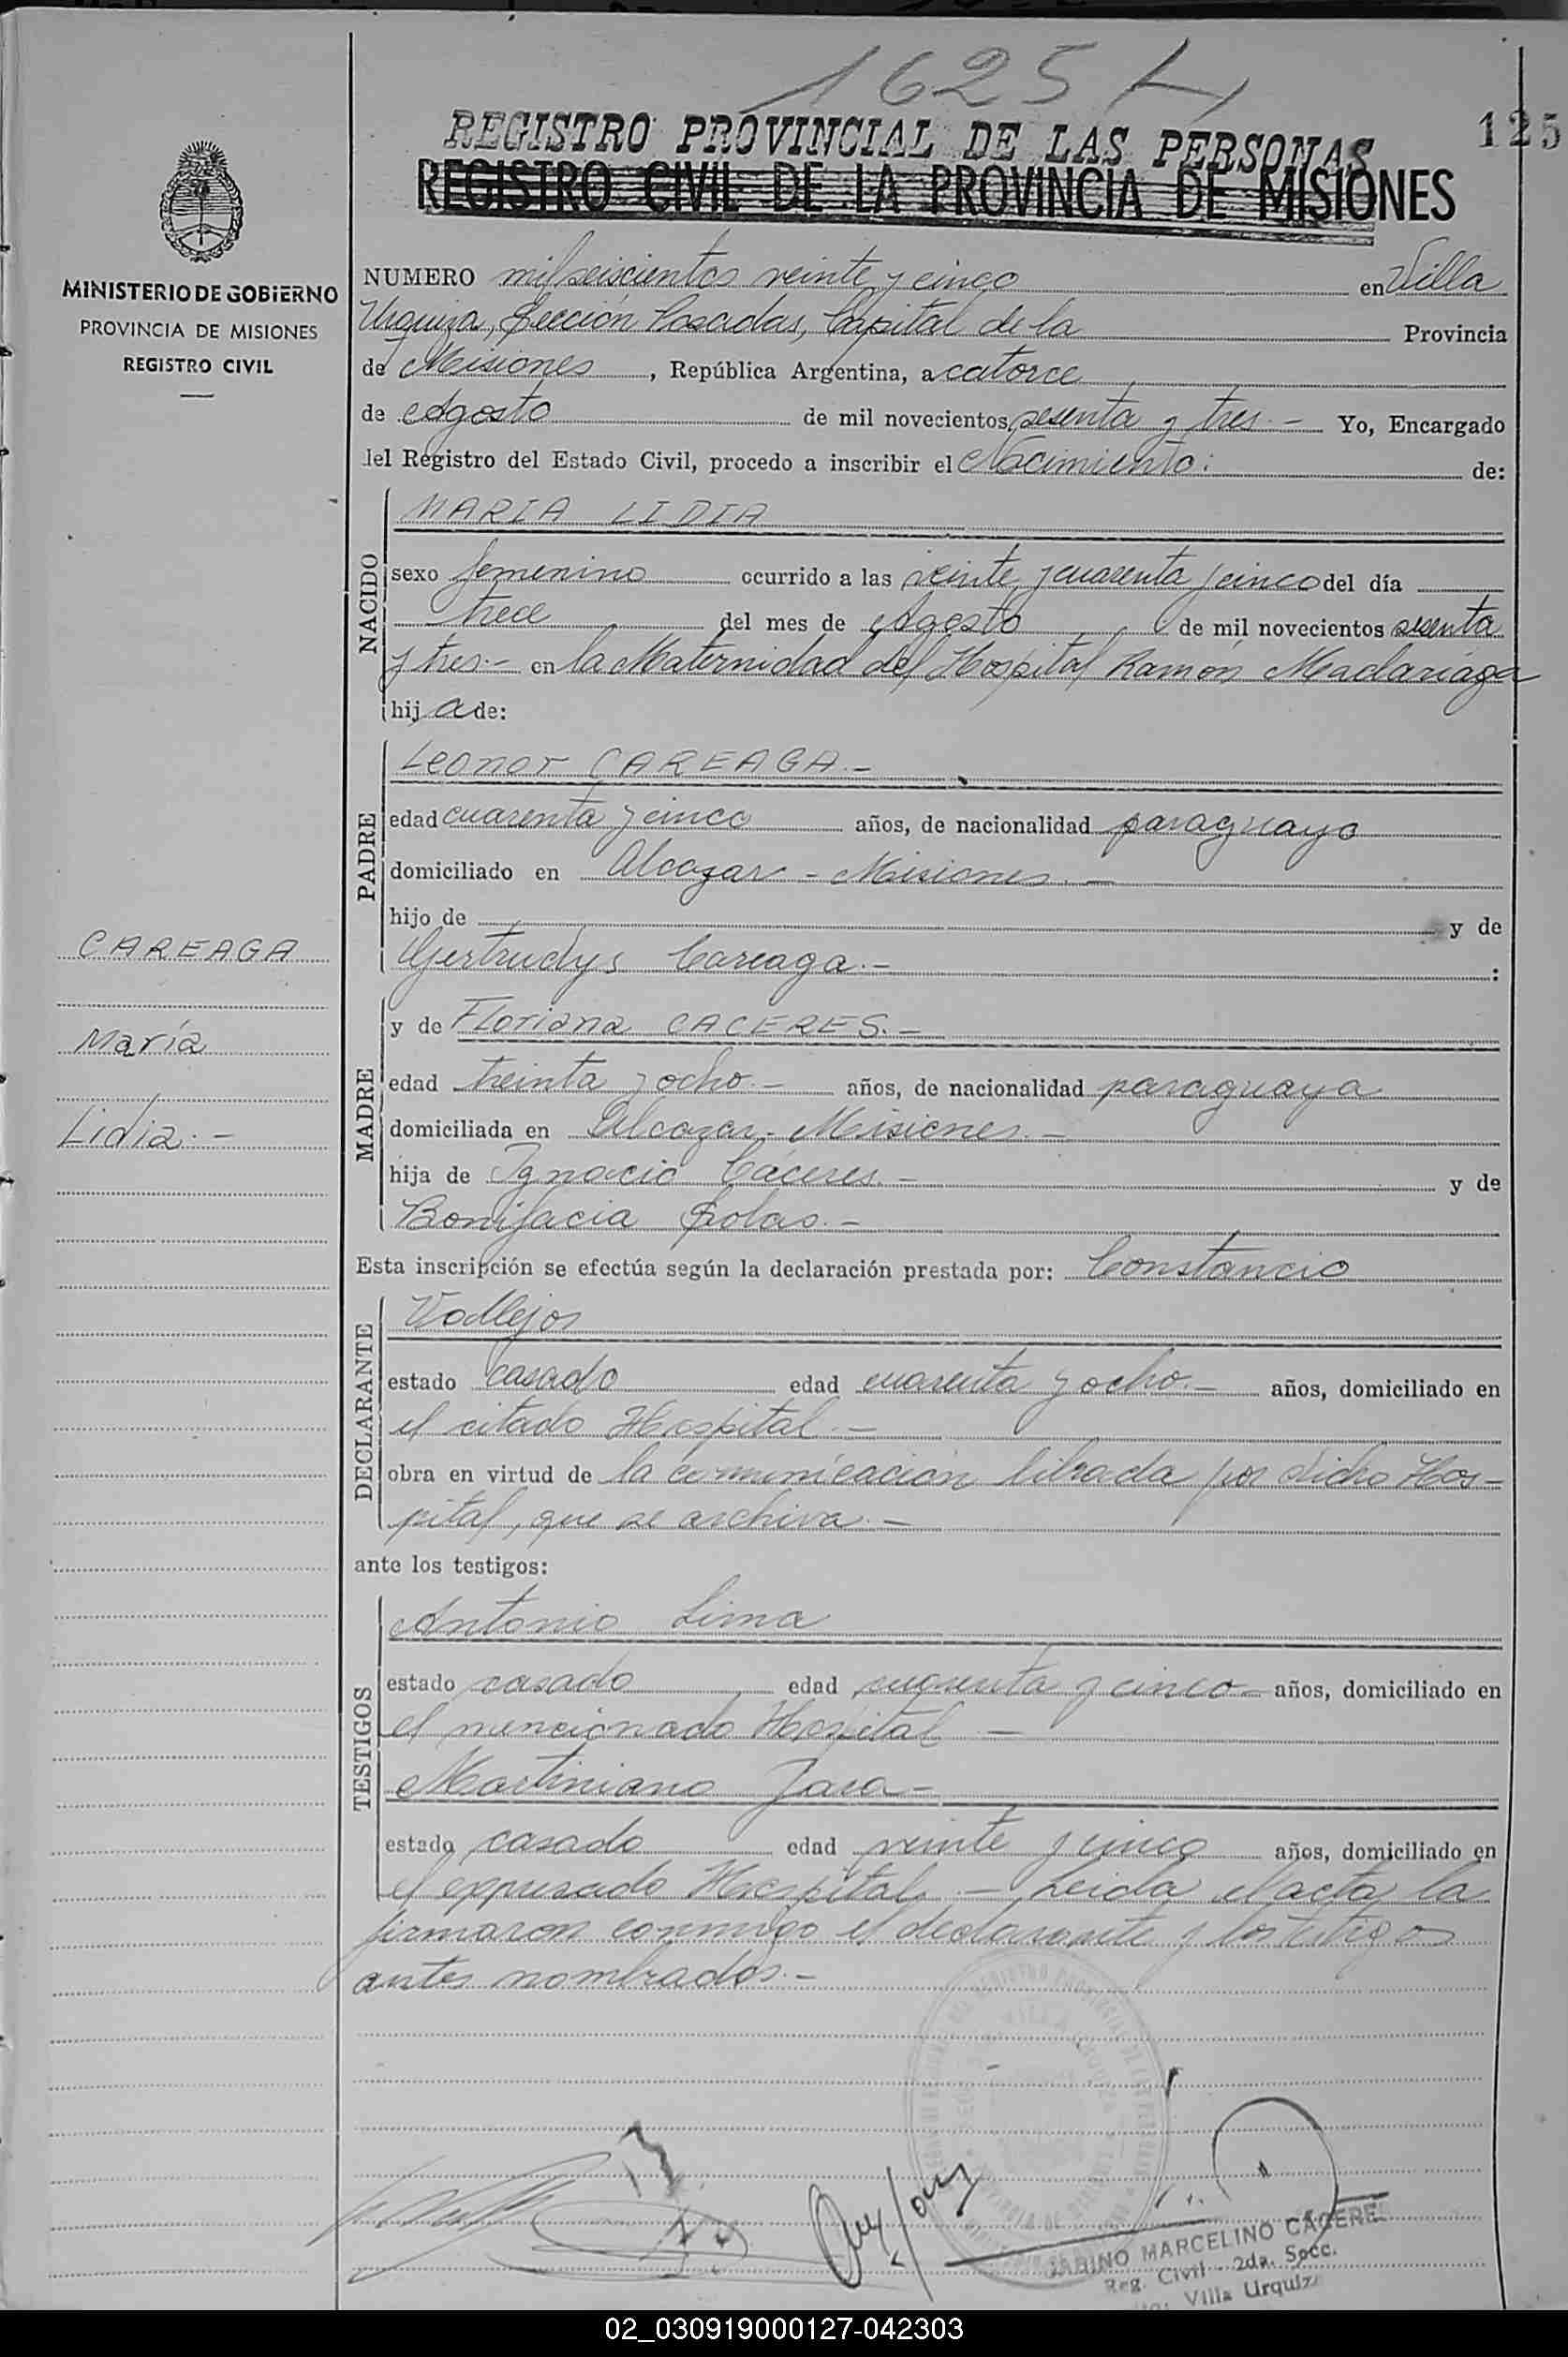 1625
125
REGISTRO PROVINCIAL DE LAS PERSONAS
REGISTRO CIVIL DE LA PROVINCIA DE MISIONES
MINISTERIO DE GOBIERNO
PROVINCIA DE MISIONES
REGISTRO CIVIL
NUMERO mil seiscientos veinte y cinco en Villa
Urquiza, Sección Posadas, Capital de la Provincia
de Misiones, República Argentina, a catorce
de Agosto de mil novecientos sesenta y tres.- Yo, Encargado
del Registro del Estado Civil, procedo a inscribir el Nacimiento: de:
NACIDO
MARIA LIDIA
sexo femenino ocurrido a las veinte y cuarenta y cinco del día
trece del mes de Agosto de mil novecientos sesenta
y tres.- en la Maternidad del Hospital Ramón Madariaga
hija de:
PADRE
Leonor CAREAGA.-
edad cuarenta y cinco años, de nacionalidad paraguayo
domiciliado en Alcazar - Misiones.-
hijo de y de
Gertrudys Careaga.- :
CAREAGA
María
Lidia.-
MADRE
y de Floriana CACERES.-
edad treinta y ocho.- años, de nacionalidad paraguaya
domiciliada en Alcazar - Misiones.-
hija de Ignacio Cáceres.- y de
Bonifacia Rolas.-
Esta inscripción se efectúa según la declaración prestada por: Constancio
DECLARANTE
Vallejos
estado casado edad cuarenta y ocho.- años, domiciliado en
el citado Hospital.-
obra en virtud de la comunicación librada por dicho Hos-
pital, que se archiva.-
ante los testigos:
TESTIGOS
Antonio Lima
estado casado edad y cinco- años, domiciliado en
el mencionado Hospital -
Martiniano Jara-
estado casado edad veinte y cinco años, domiciliado en
el expresado Hospital.- Leida el acta la
firmaron conmigo el declarante y los testigos
antes nombrados.-
MARCELINO CACERES
Reg. Civil - 2da. Secc.
Villa Urquiza
02_030919000127-042303